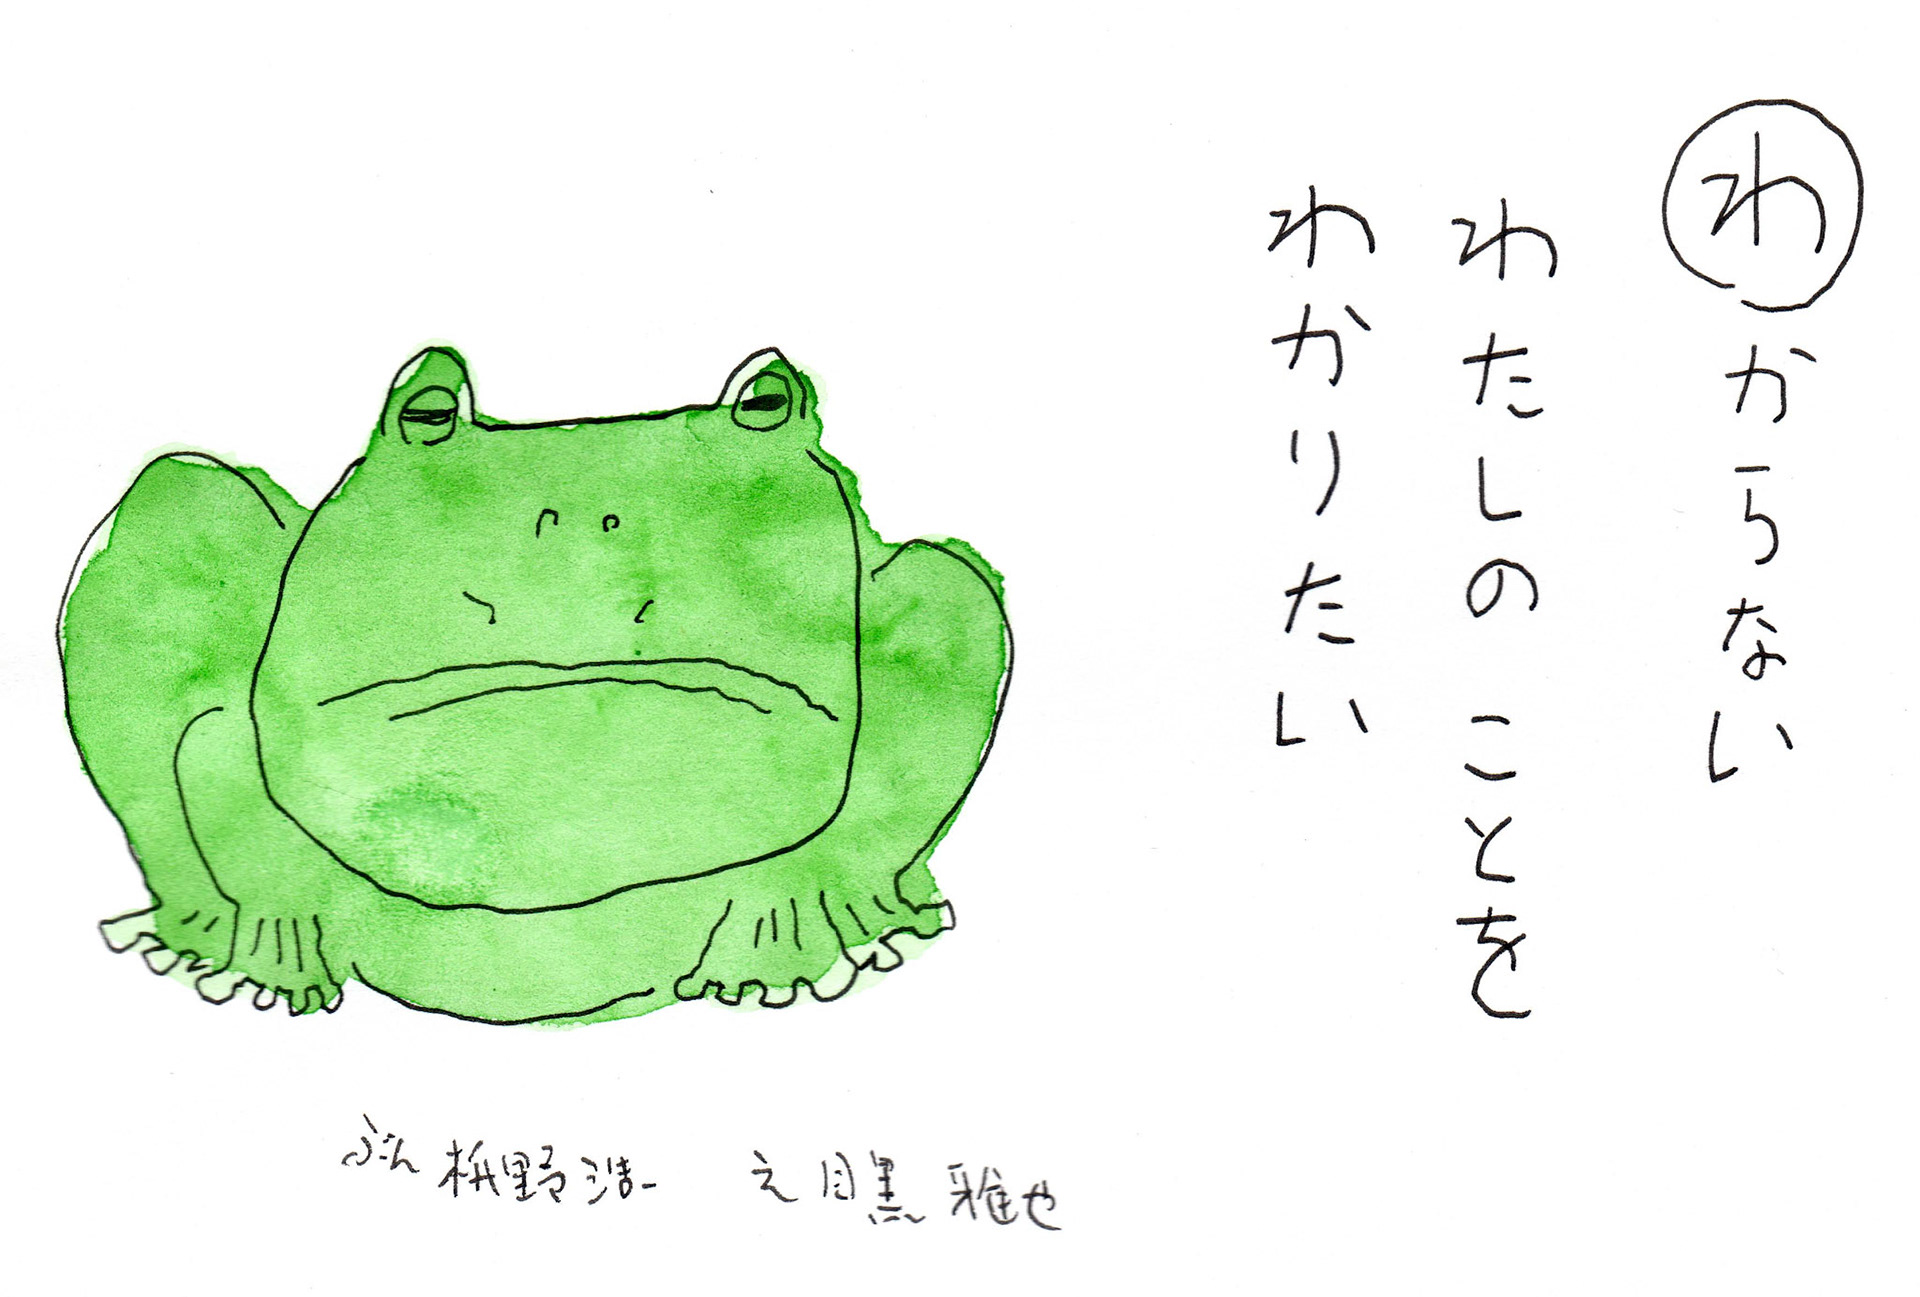 わからない
わたしの ことを
わかりたい
ぶん 枡野浩一 え 目黒雅也